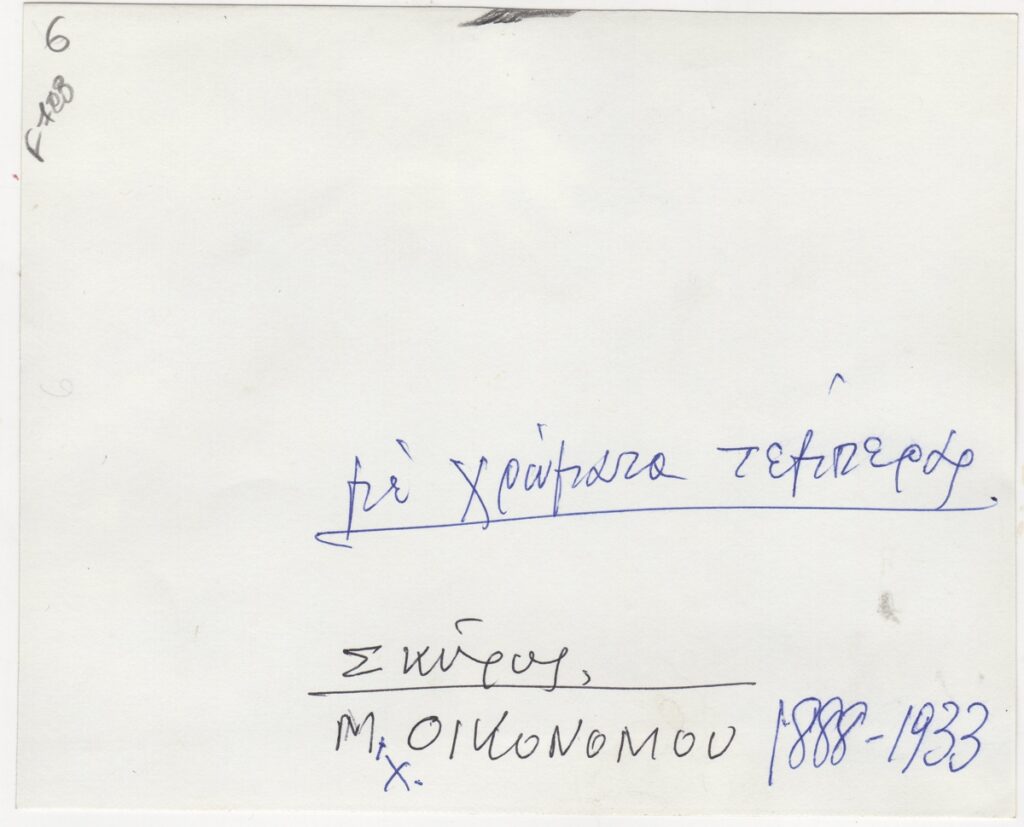 6
F 728
6
μὲ χρώματα τέμπερας.
Σκύρος,
Μ. Χ. ΟΙΚΟΝΟΜΟΥ 1888-1933